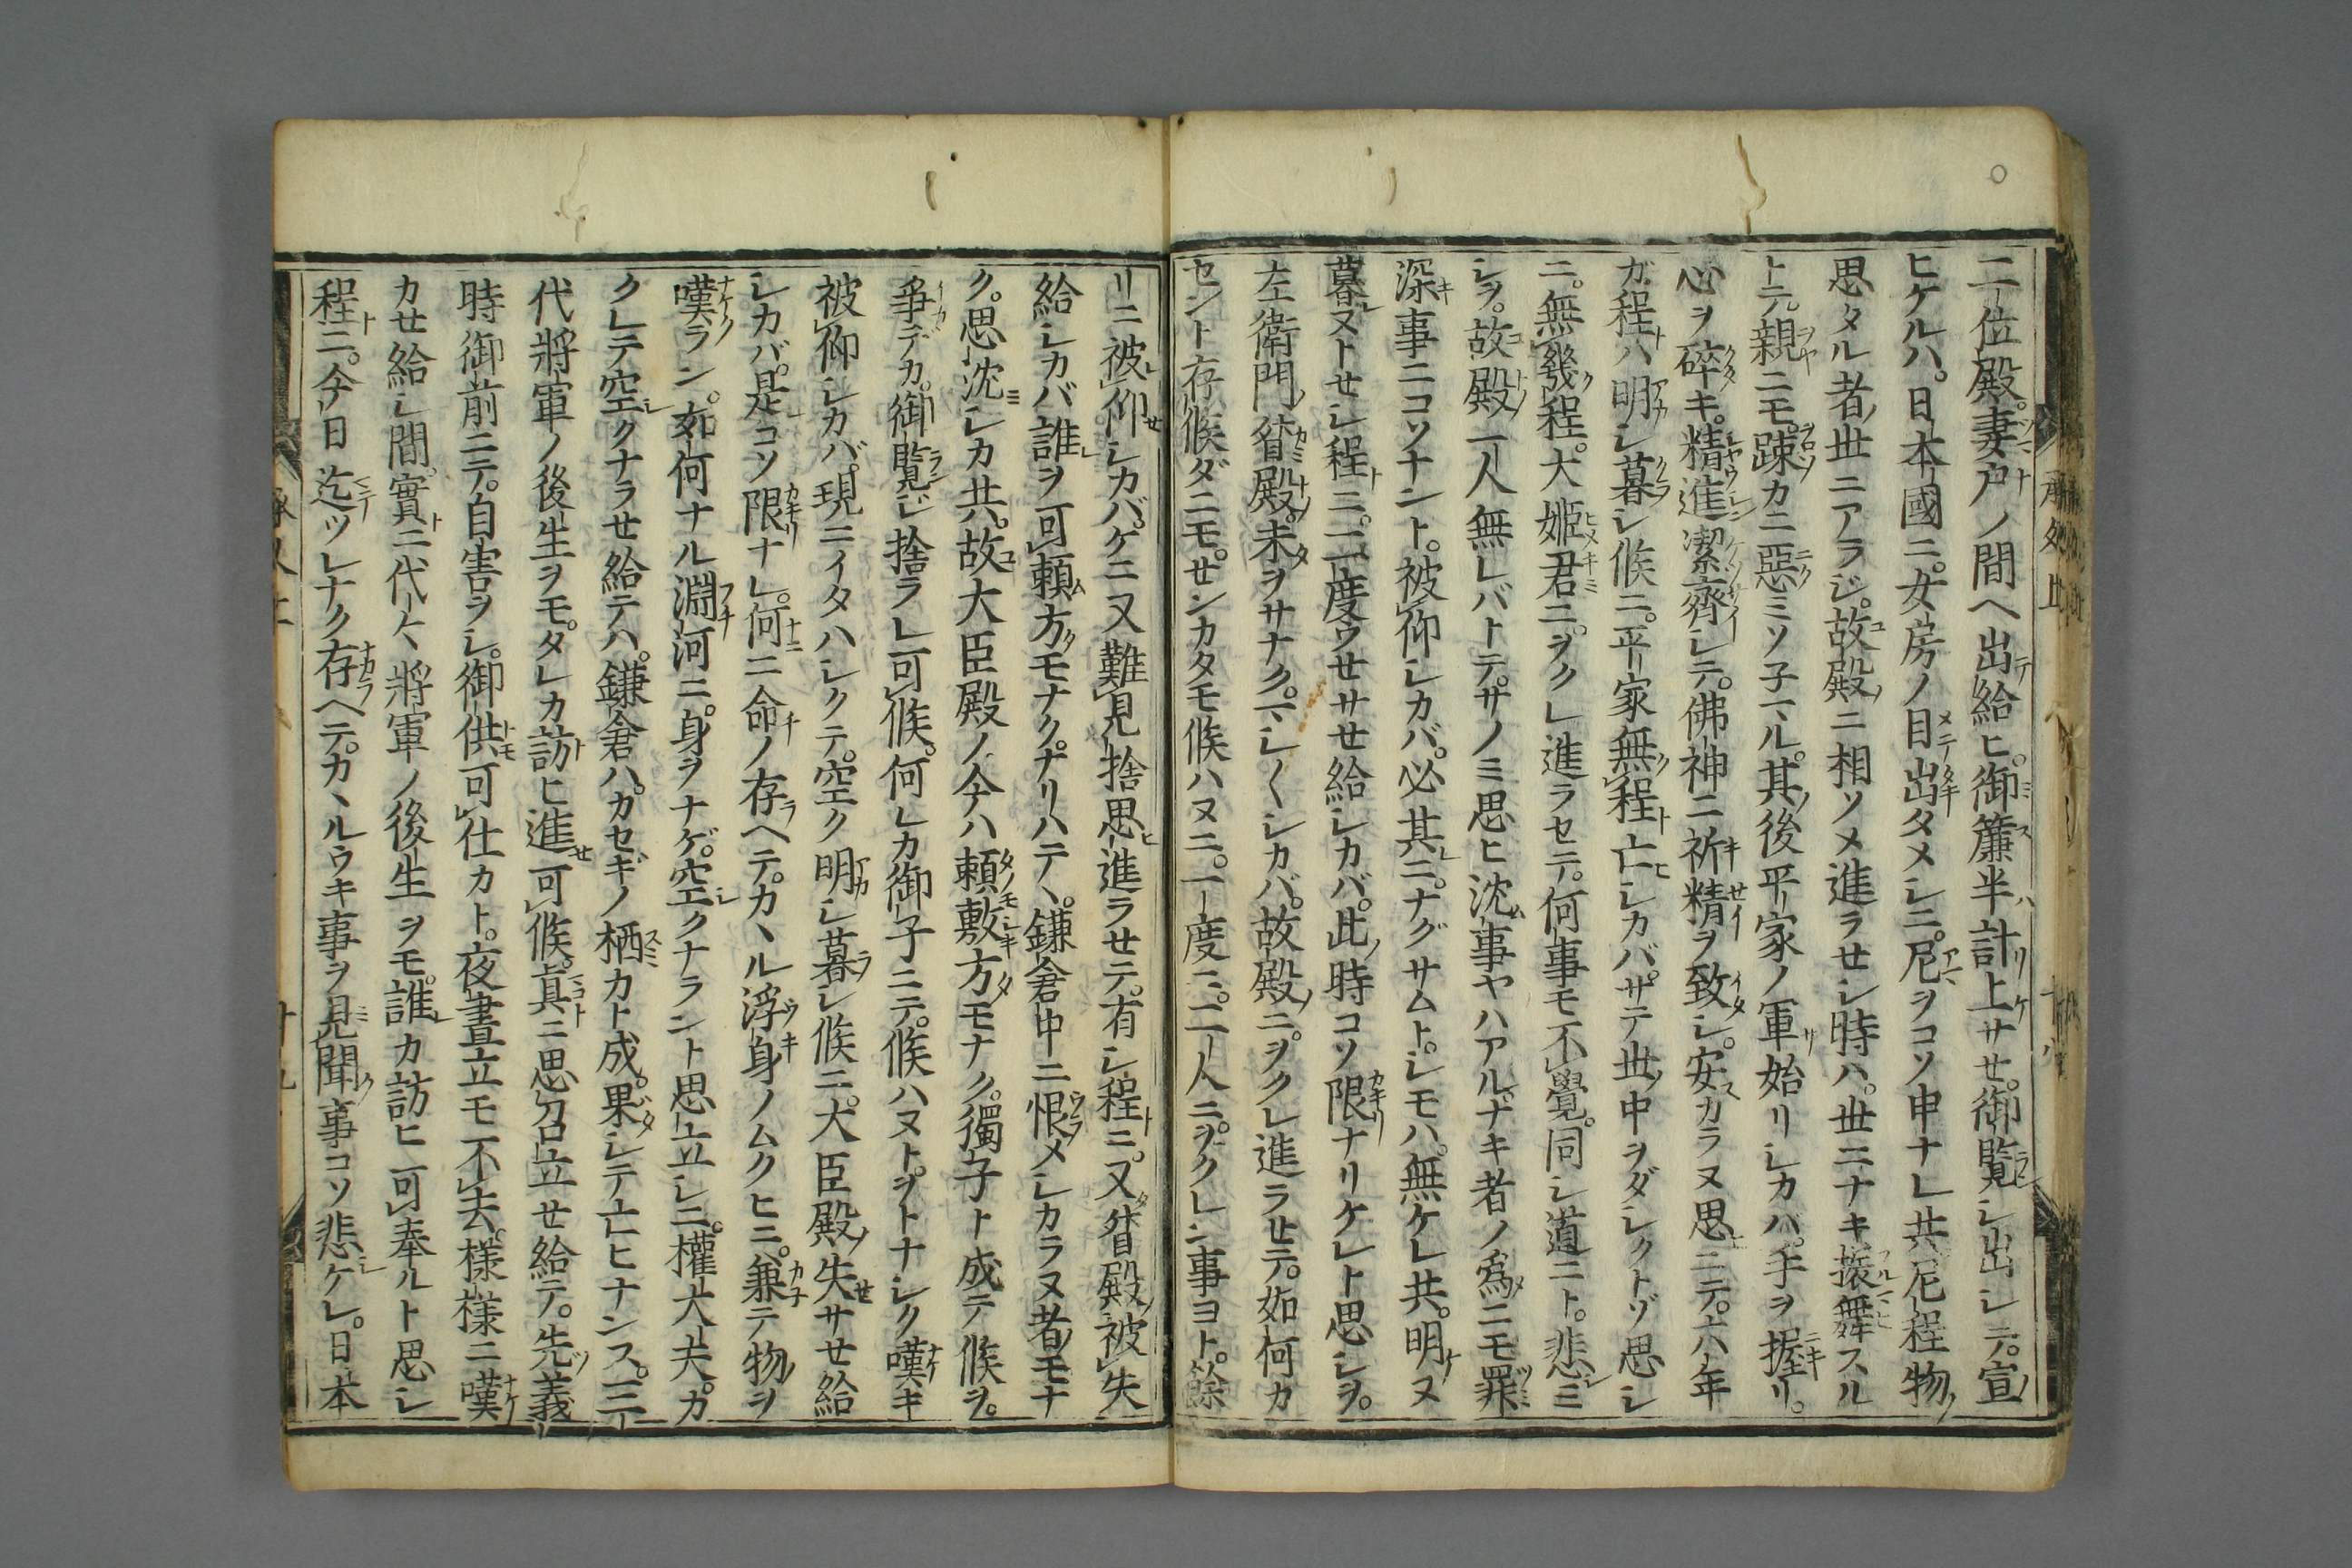 二位殿。妻戸ノ間ヘ出給ヒ。御簾半計上サせ。御覧シ出シテ。宣
ヒケルハ。日本國ニ。女房ノ目出タメシニ。尼ヲコソ申ナレ共。尼程物
思タル者。世ニアラジ。故殿ニ相ソメ進ラせシ時ハ。世ニナキ振舞スル
トテ。親ニモ。踈カニ惡ミソ子マル。其後平家ノ軍始リシカバ。手ヲ握リ。
心ヲ碎キ。精進潔齊シテ。佛神ニ祈精ヲ致シ。安カラヌ思ニテ。六年
ガ程ハ明シ暮シ候ニ。平家無程亡シカバ。サテ世ノ中ヲダシクトゾ思シ
ニ。無幾程。大姫君ニ。ヲクレ進ラセテ。何事モ不覺。同シ道ニト。悲ミ
シヲ。故殿一人無レバトテ。サノミ思ヒ沈事ヤハアル。ナキ者ノ爲ニモ罪
深事ニコソナント。被仰シカバ。必其ニ。ナグサムト。シモハ。無ケレ共。明ヌ
暮ヌトせシ程ニ。二度ウせサせ給シカバ。此時コソ限ナリケレト思シヲ。
左衛門督殿。未ヲサナク。マシ〳〵シカバ。故殿ニ。ヲクレ進ラせテ。如何カ
セント存候ダニモ。せンカタモ候ハヌニ。一度ニ。二人ニ。ヲクレン事ヨト。餘
リニ被仰シカバ。ゲニ又難見捨思進ラせテ。有シ程ニ。又督殿被失
給シカバ誰ヲ可頼方モナク。ナリハテヽ。鎌倉中ニ恨メシカラヌ者モナ
ク。思沈シカ共。故大臣殿ノ今ハ頼敷方モナク。獨子ト成テ候ヲ。
爭デカ。御覧ジ捨ラレ可候。何レカ御子ニテ。候ハヌト。ヲトナシク嘆キ
被仰シカバ。現ニイタハシクテ。空ク明シ暮シ候ニ。大臣殿失サせ給
シカバ。是コソ限ナレ。何ニ命ノ存ヘテ。カヽル浮身ノムクヒニ。兼テ物ヲ
嘆ラン。如何ナル淵河ニ。身ヲナゲ。空クナラント思立シニ。權大夫。カ
クレテ空クナラせ給テハ。鎌倉ハ。カセギノ栖カト成。果シテ亡ヒナンス。三
代將軍ノ後生ヲモ。タレカ訪ヒ進可候。眞ニ思召立せ給テ。先義
時御前ニテ。自害ヲシ。御供可仕カト。夜晝立モ不去。樣樣ニ嘆
カせ給シ間。實ニ代々ノ將軍ノ後生ヲモ。誰カ訪ヒ可奉ルト思シ
程ニ。今日迄ツレナク存ヘテ。カヽルウキ事ヲ見聞事コソ悲ケレ。日本